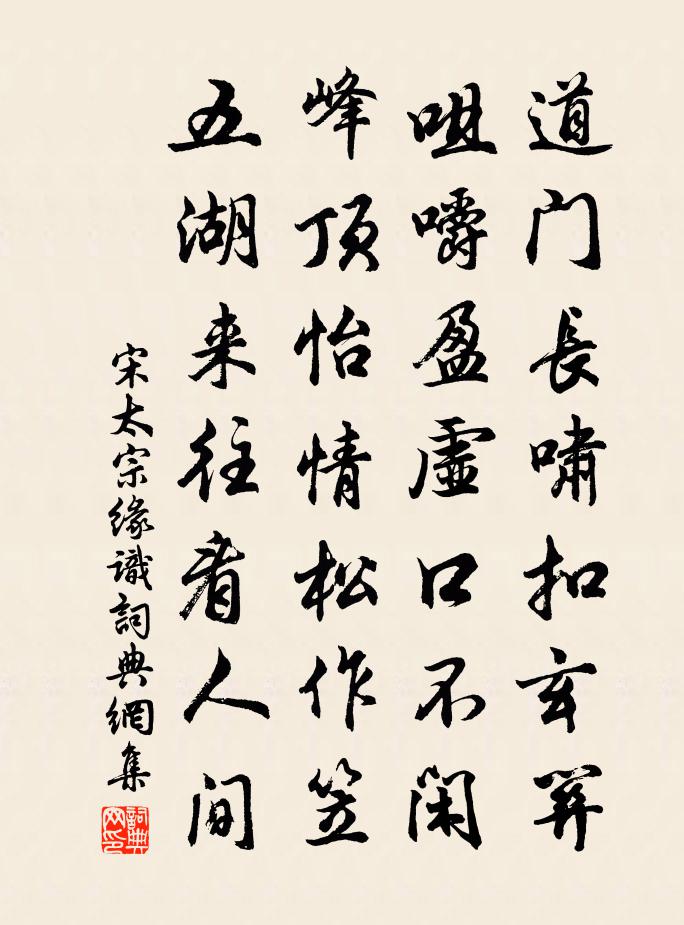 道门長啸扣玄关
咀嚼盈虚口不闲
峰顶怡情松作笠
五湖来往看人间
宋太宗缘識詞典網集
詞典网印